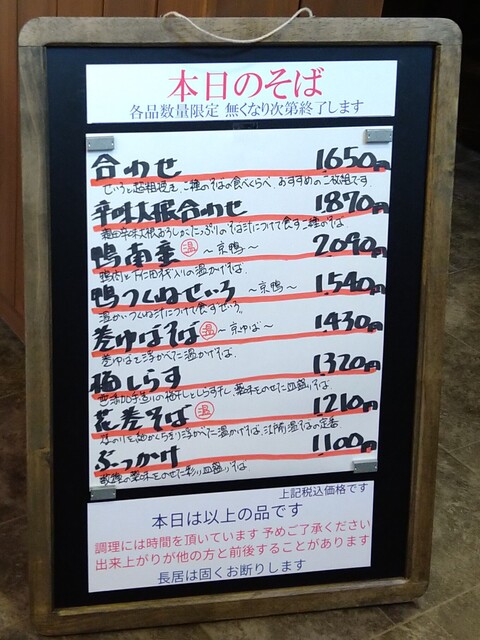 本日のそば
各品数量限定 無くなり次第終了します
合わせ 1650円
せいろと超粗挽き、二種のそばの食べくらべ おすすめの二枚組です
辛味大根合わせ 1870円
鴨南蛮 温 ～京鴨～ 2090円
温かけそば
鴨つくねせいろ ～京鴨～ 1540円
温かいつくね汁につけて食すせいろ。
巻ゆばそば 温 ～京ゆば～ 1430円
巻ゆばを浮かべた温かけそば
梅しらす 1320円
花巻そば 温 1210円
ぶっかけ 1100円
上記税込価格です
本日は以上の品です
調理には時間を頂いています 予めご了承ください
出来上がりが他の方と前後することがあります
長居は固くお断りします